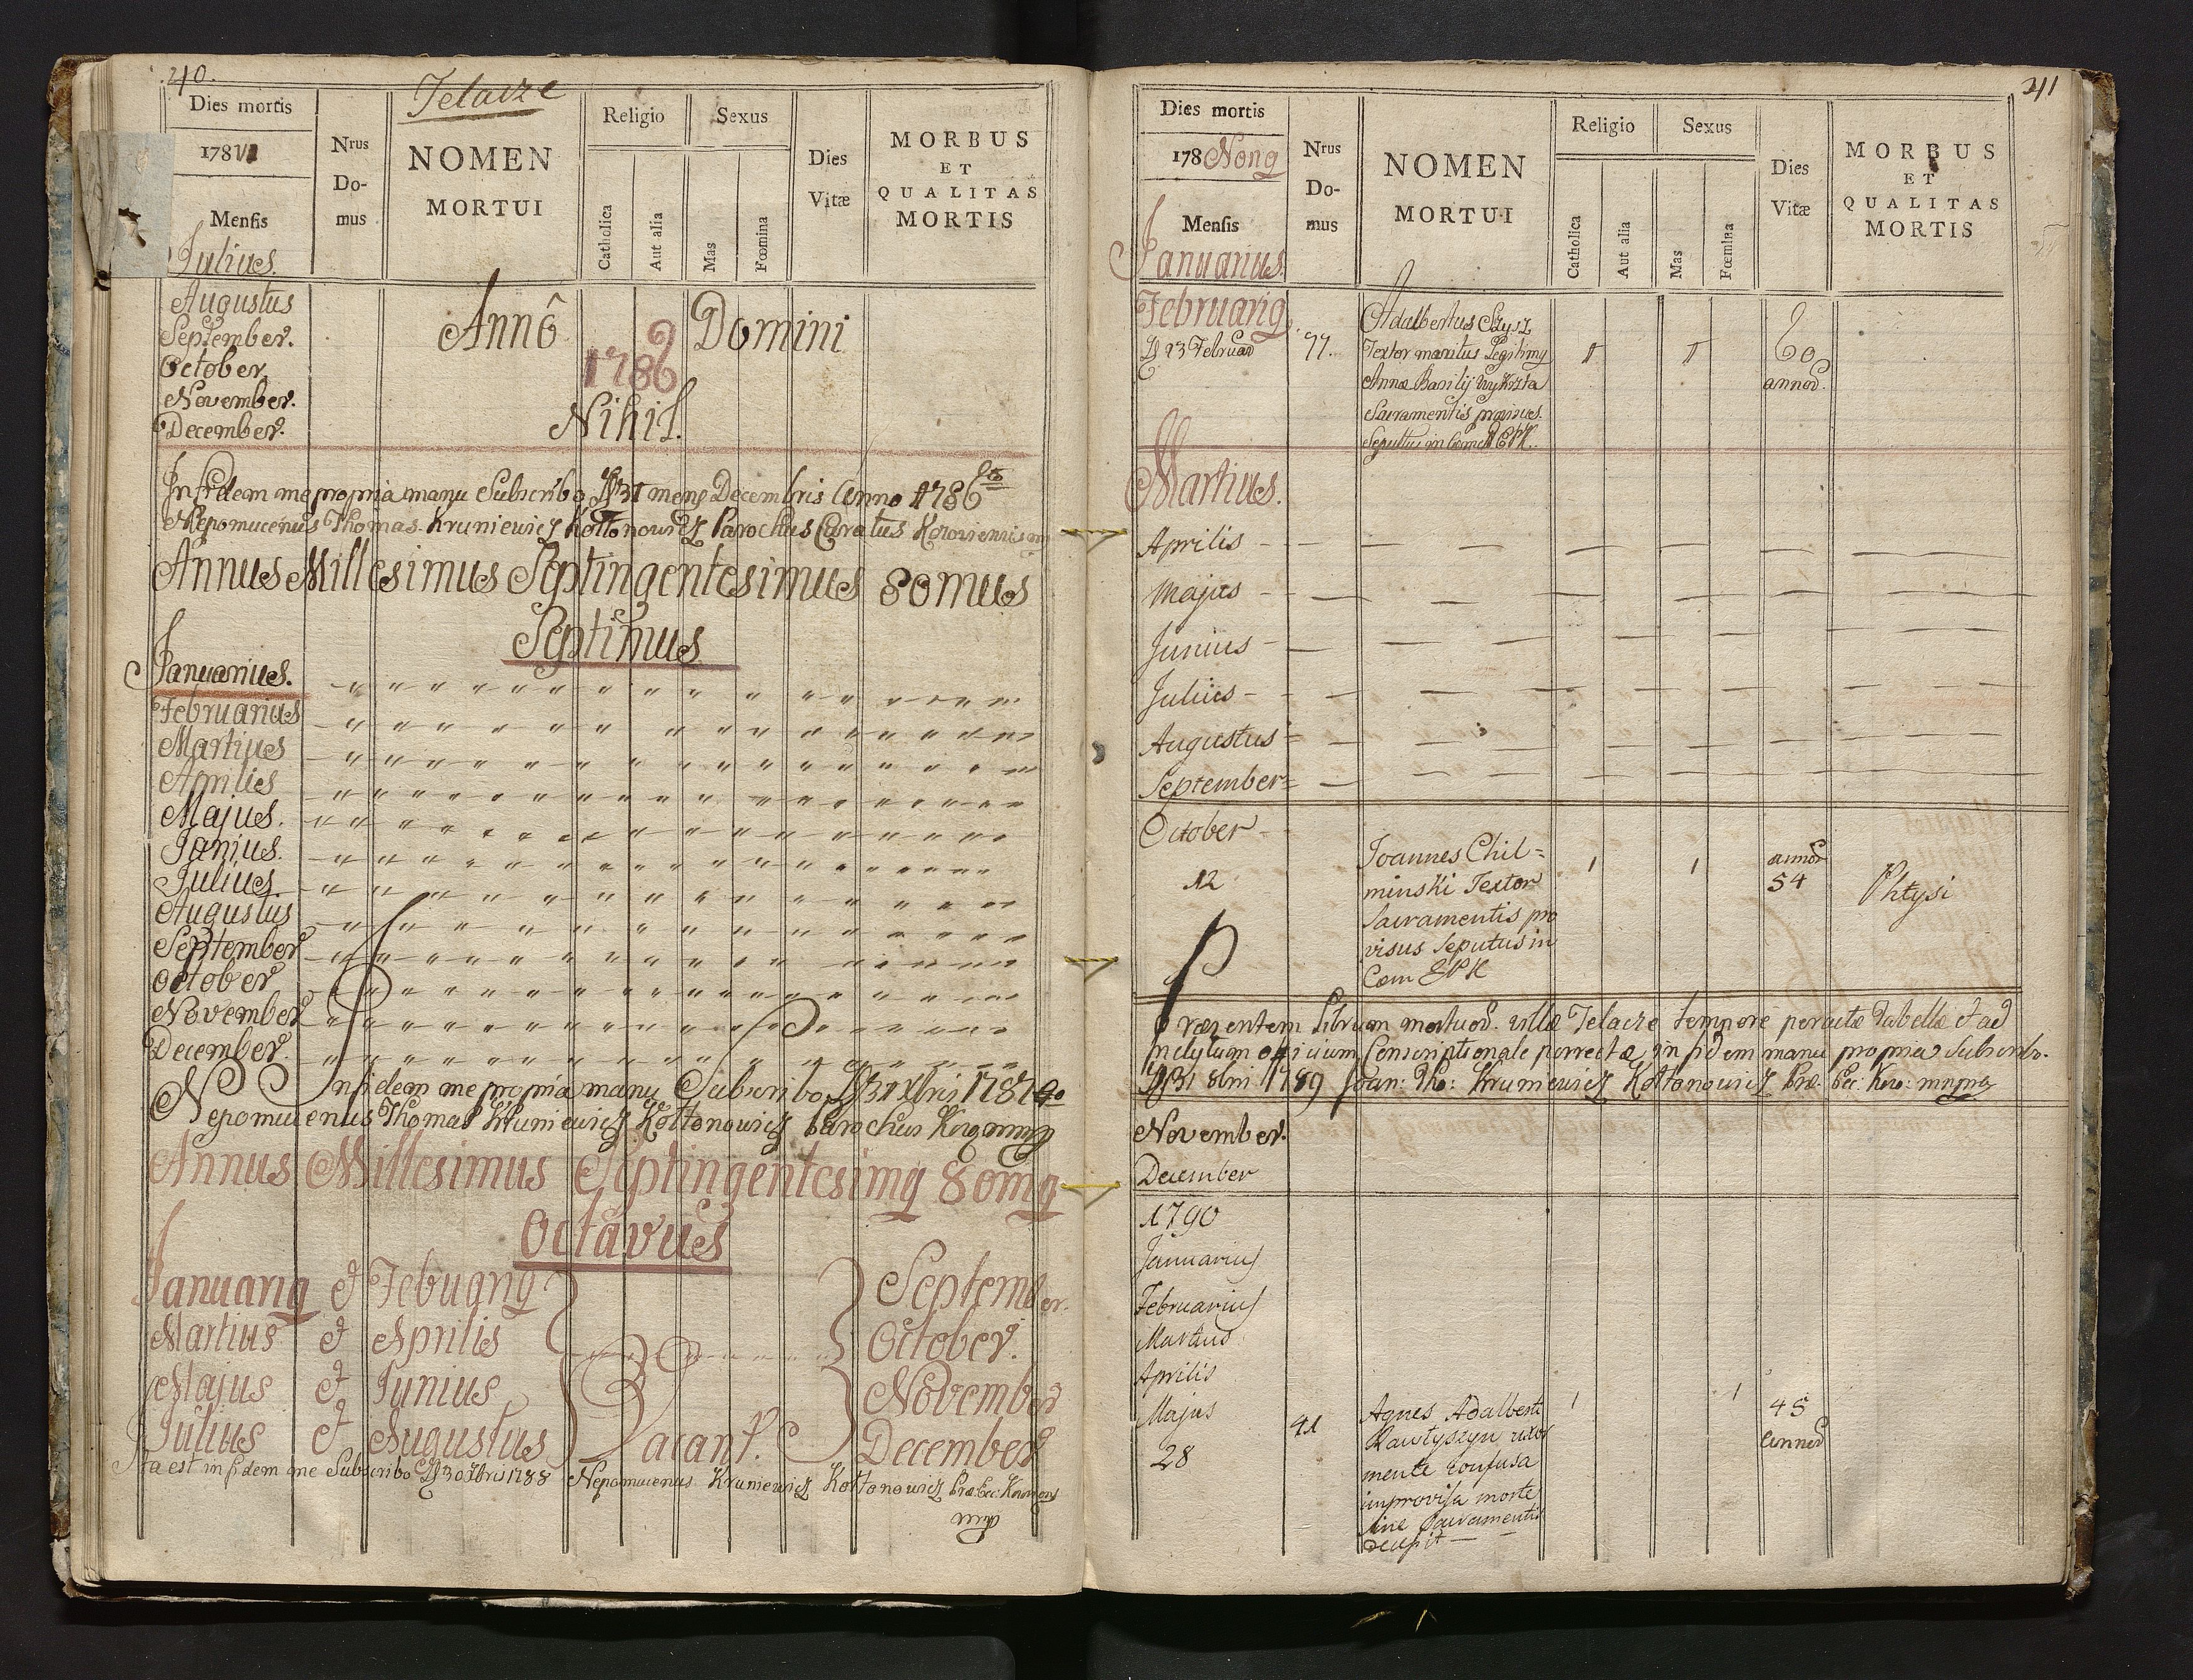 240.
Telacze
Dies mortis
178VI
Mensis
Nrus
Do-
mus
NOMEN
MORTUI
Religio
Catholica
Aut alia
Sexus
Mas
Fœmina
Dies
Vitæ
MORBUS
ET
QUALITAS
MORTIS
Julius.
Augustus
September.
October
November.
December.
Annô Domini
1786
Nihil.
In fidem me propria manu Subscribo D 31 mens Decembris Anno 1786to
Nepomucenus Thomas Kruniewicz Kottonowicz Parochus Curatus
Annus Millesimus Septingentesimus 80mus
Septimus
Januarius.
Februarius
Martius
Aprilis
Majus.
Junius.
Julius
Augustus
September
October
November
December.
In fidem me propria manu Subscribo D 31 Xbris 1787
Nepomucenus Thomas Kruniewicz Kottonowicz Parochus
Annus Millesimus Septingentesimq 80mq
Octavus
Januariq et Februariq
Martius et Aprilis
Majus et Junius
Julius et Augustus
Vacant.
September.
October.
November
December
Ita est in fidem me Subscribo D 30 Xbris 1788 Nepomucenus Kruniewicz Kottonowicz
241
Dies mortis
178 Nonq
Mensis
Nrus
Do-
mus
NOMEN
MORTUI
Religio
Catholica
Aut alia
Sexus
Mas
Fœmina
Dies
Vitæ
MORBUS
ET
QUALITAS
MORTIS
Januarius.
Februariq
D 23 Februar
77.
Adalbertus Szysz
Textor maritus Legitimq
Annæ Basilij Wykrzta
Sacramentis provisus.
Sepultus in Coemet EPK.
1 1
60
annor.
Martius.
Aprilis
Majus
Junius
Julius
Augustus
September
October
12
Joannes Chil=
minski Textor
Sacramentis pro
visus Seputus in
Coem EPK
1 1
annor
54
Phtysi
Præsentem Librum mortuor. villæ Telacze tempore peractæ tabellæ et ad
Inclytum officium Conscriptionale porrectæ in fidem manu propria Subscribo.
D 31 8bri 1789 Joan: Tho: Kruniewicz Kottonowicz
November.
December
1790
Januarius
Februarius
Martius
Aprilis
Majus
28
41
Agnes Adalberti
Pawłyszyn uxor
mente confusa
improvisa morte
sine Sacramentis
decessit
1 1
45
annor